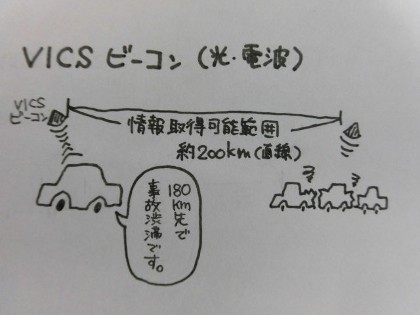 VICS ビーコン（光・電波）
VICS
ビーコン
情報取得可能範囲
約200km（直線）
180
km先で
事故渋滞です。